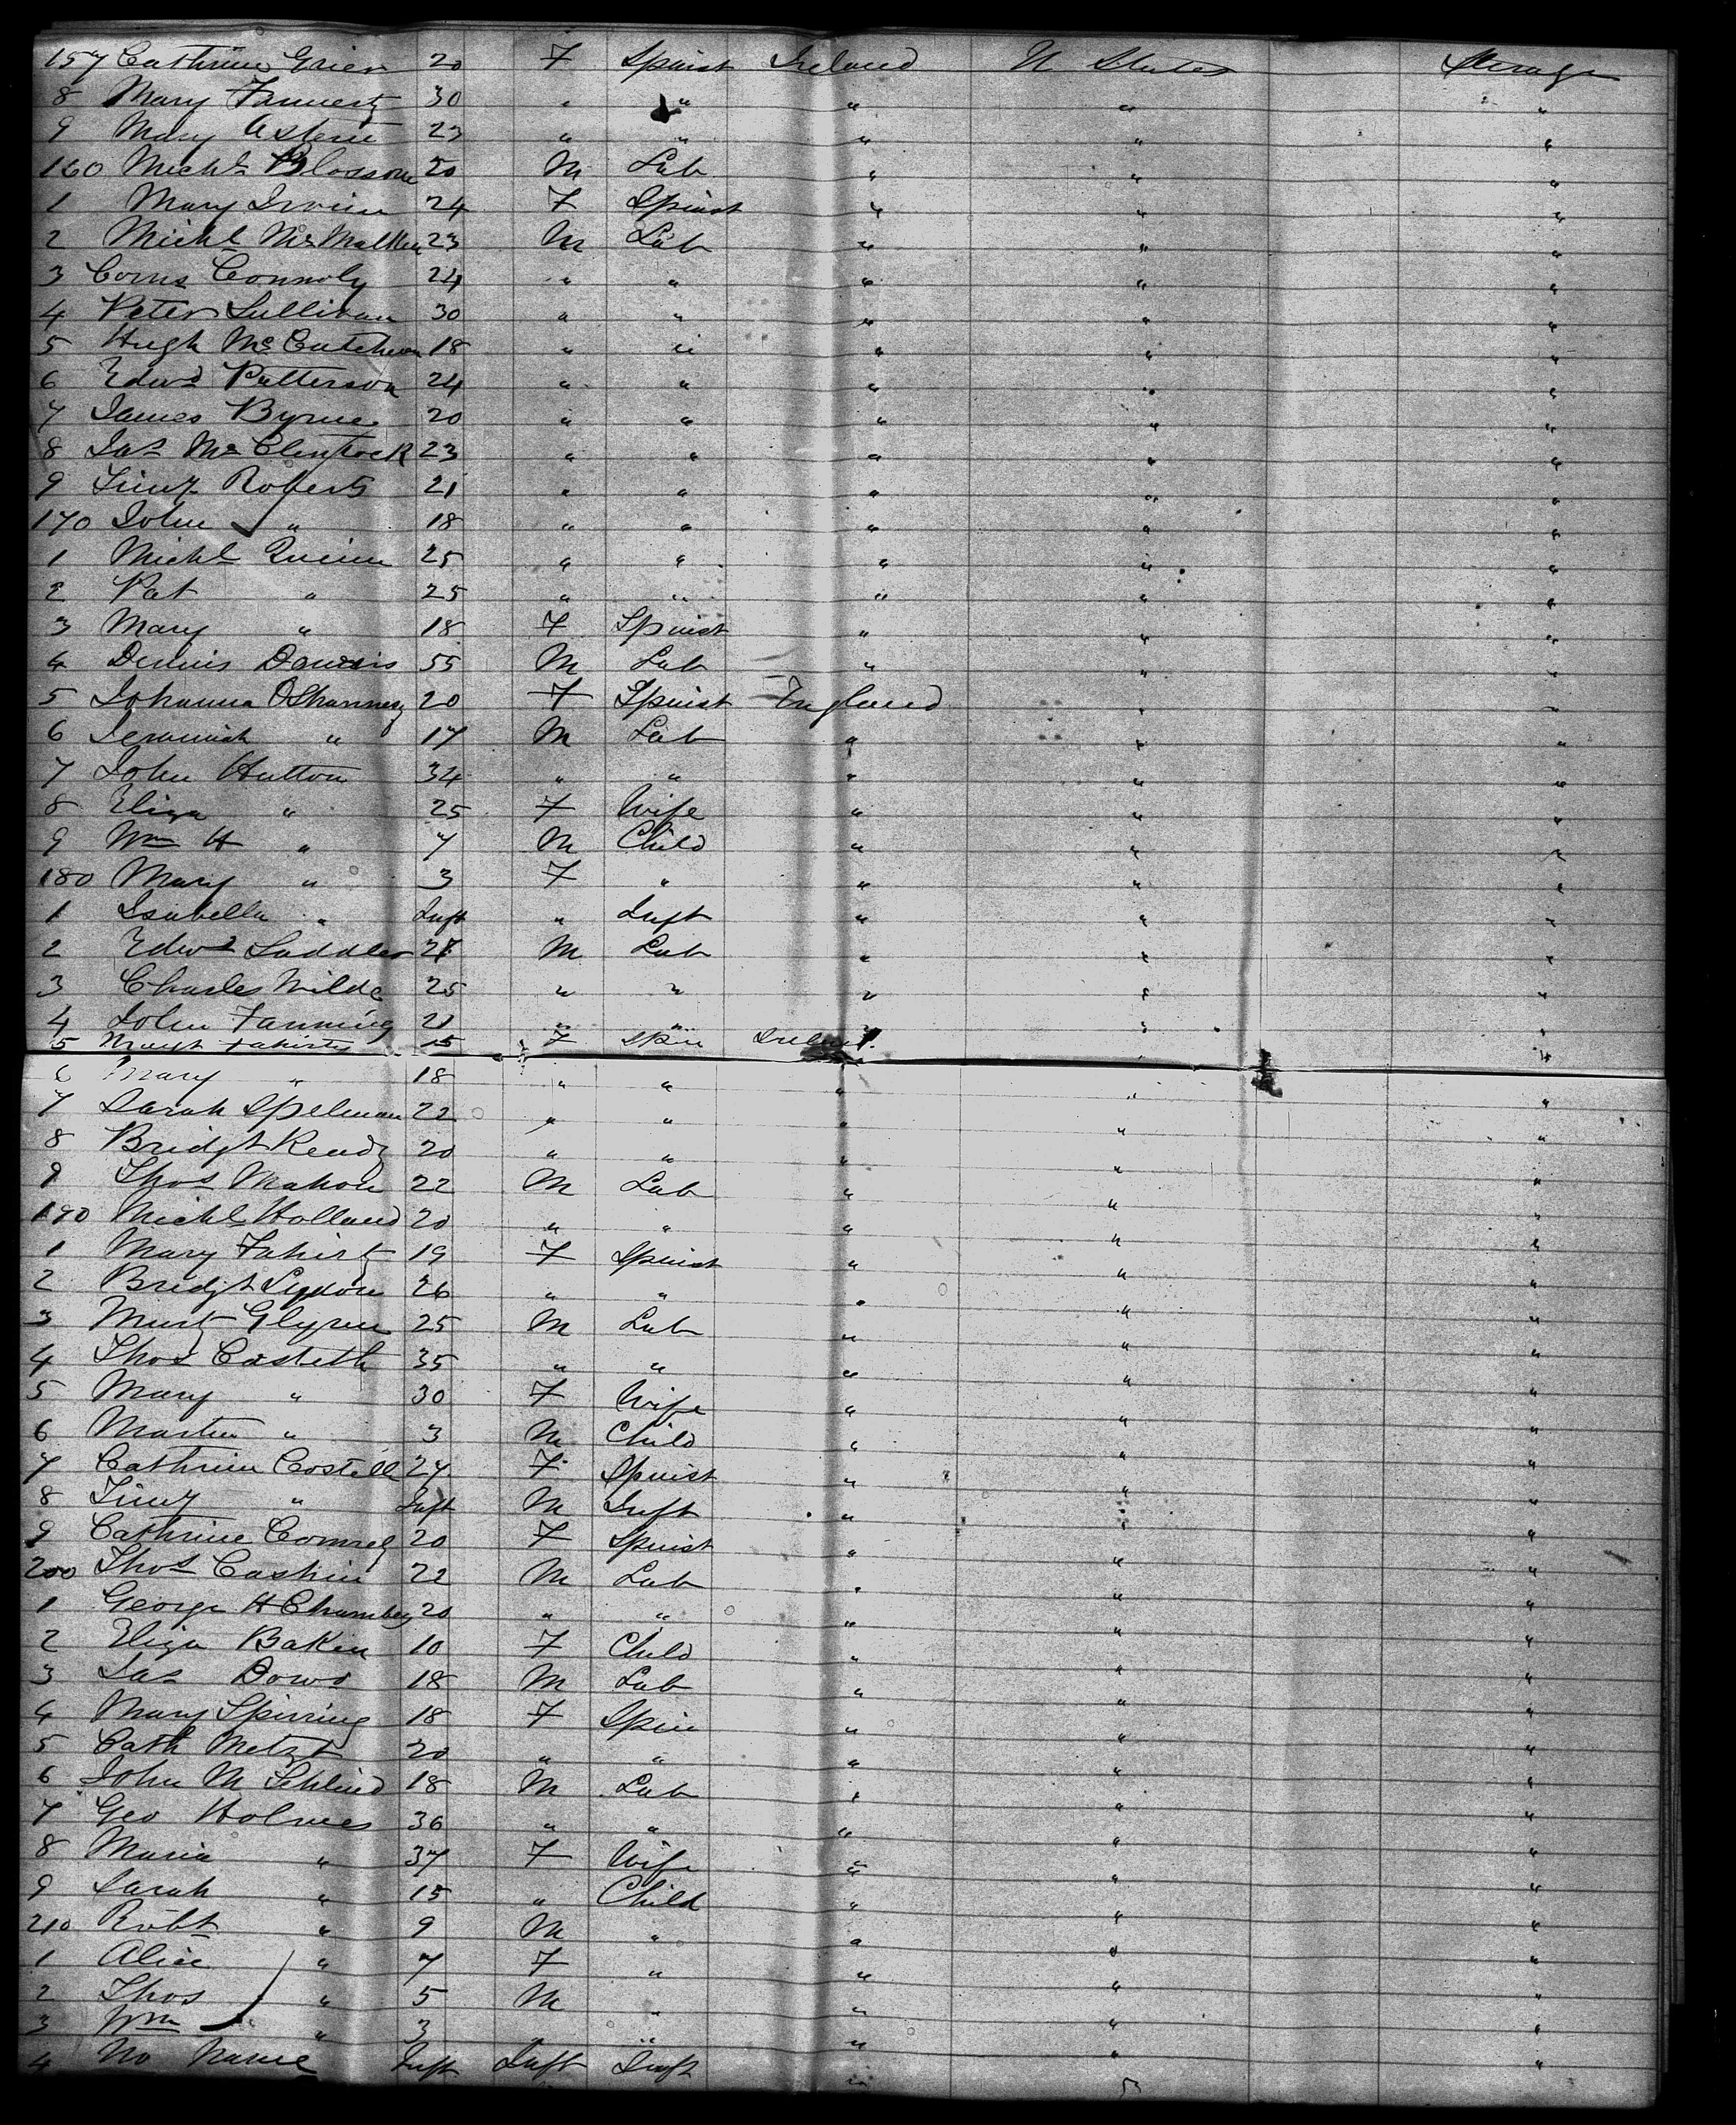 157 Cathrine Grier 20 F Spinst Ireland U States Sterage
8 Mary 30 " " " " "
9 Mary 23 " " " " "
160 Michl Blossom 20 M Lab " " "
1 Mary Irvin 24 F Spinst " " "
2 Michl McMullen 23 M Lab " " "
3 Corns Connoly 24 " " " " "
4 Peter Sullivan 30 " " " " "
5 Hugh McCutcheon 18 " " " " "
6 Edwd Patterson 24 " " " " "
7 James Byrne 20 " " " " "
8 Jas McClintock 23 " " " " "
9 Timy Roberts 21 " " " " "
170 John " 18 " " " " "
1 Michl Quinn 25 " " " " "
2 Pat " 25 " " " " "
3 Mary " 18 F Spinst " " "
4 Dennis 55 M Lab " " "
5 Johanna OShannesy 20 F Spinst England " "
6 Jeremiah " 17 M Lab " " "
7 John Hutton 34 " " " " "
8 Eliza " 25 F Wife " " "
9 Wm H " 7 M Child " " "
180 Mary " 3 F " " " "
1 Isabella " Inft " Inft " " "
2 Edwd Saddler M Lab " " "
3 Charles Wilde 25 " " " " "
4 John Fanning 21 " " " " "
5 Margt Fahirty 15 F Spin Ireland " "
6 Mary " 18 " " " " "
7 Sarah Spelman 22 " " " " "
8 Bridgt Ready 20 " " " " "
9 Thos Mahon 22 M Lab " " "
190 Michl Holland 20 " " " " "
1 Mary Fahirty 19 F Spinst " " "
2 Bridgt Lydon 26 " " " " "
3 Murty Glynn 25 M Lab " " "
4 Thos 35 " " " " "
5 Mary " 30 F Wife " " "
6 Martin " 3 M Child " " "
7 Cathrin Costell 24 F Spinst " " "
8 Timy " Inft M Inft " " "
9 Cathrine 20 F Spinst " " "
200 Thos Cashin 22 M Lab " " "
1 George H 20 " " " " "
2 Eliza Bakin 10 F Child " " "
3 Jas Dowd 18 M Lab " " "
4 Mary Spirring 18 F Spin " " "
5 Cath 20 " " " " "
6 John M 18 M Lab " " "
7 Geo Holmes 36 " " " " "
8 Maria " 37 F Wife " " "
9 Sarah " 15 " Child " " "
210 Robt " 9 M " " " "
1 Alice " 7 F " " " "
2 Thos " 5 M " " " "
3 Wm " 3 " " " "
4 No Name Inft Inft Inft " "